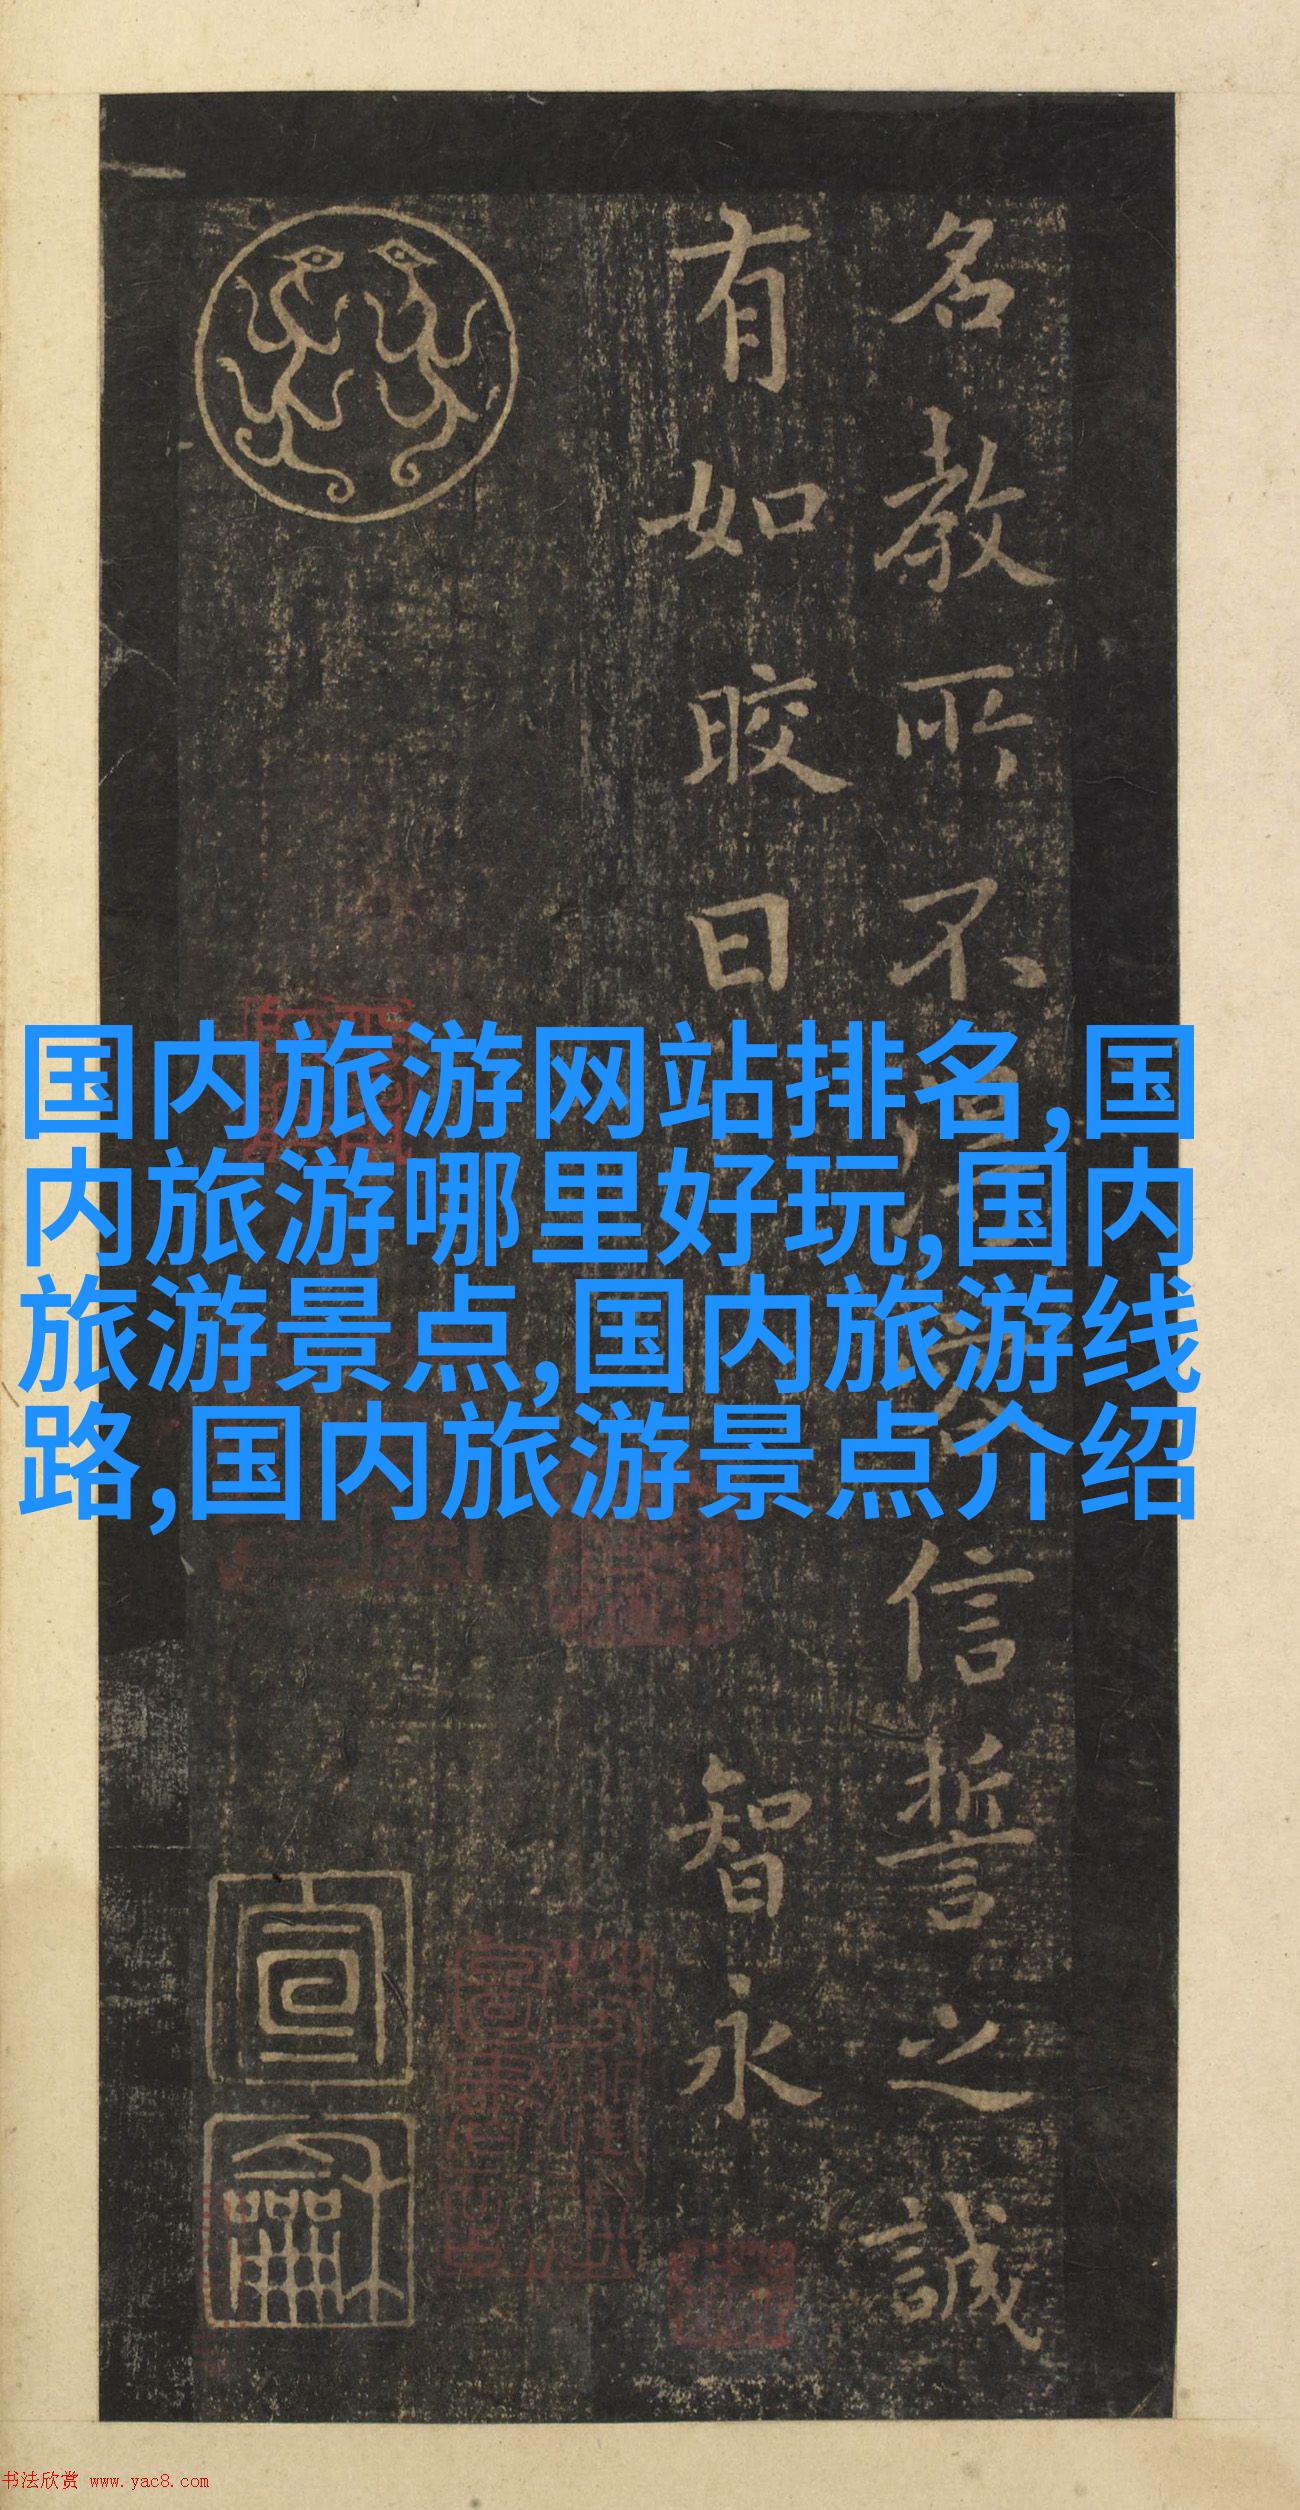 名教所不信誓之誠
有如晈日
智永
宣
龢
国内旅游网站排名,国
内旅游哪里好玩,国内
旅游景点,国内旅游线
路,国内旅游景点介绍
书法欣赏 www.yac8.com